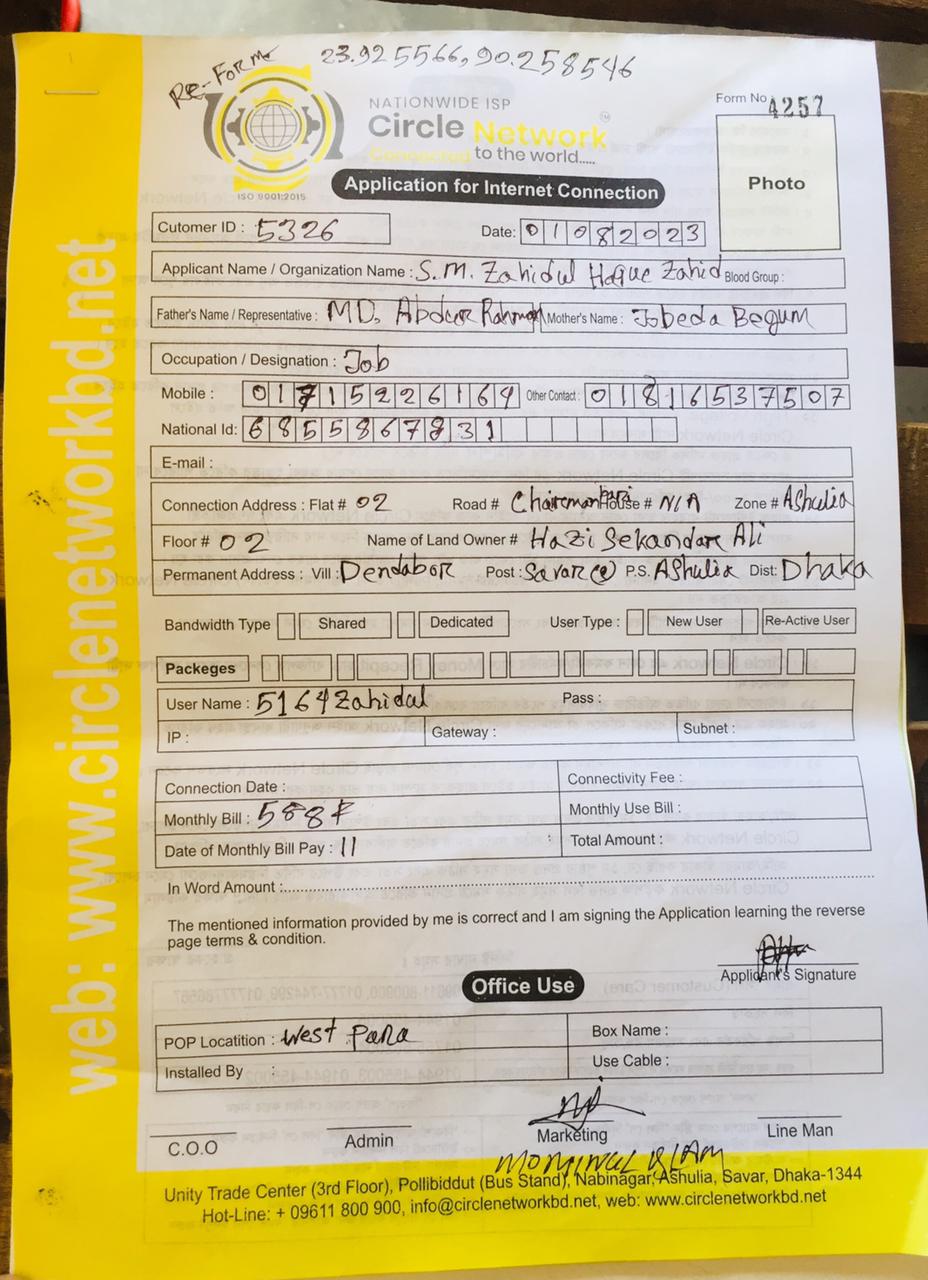 Re-Form 23.925566,90.258546
NATIONWIDE ISP
Circle Network TM
Connected to the world.....
ISO 9001:2015
Form No 4257
Application for Internet Connection
Photo
Cutomer ID : 5326 Date: 01082023
Applicant Name / Organization Name : S.M. Zahidul Haque Zahid Blood Group :
Father's Name / Representative : MD. Abdur Rahman Mother's Name : Jobeda Begum
Occupation / Designation : Job
Mobile : 01715226164 Other Contact : 01816537507
National Id: 6855867831
E-mail :
Connection Address : Flat # 02 Road # Chairmanbari House # N/A Zone # Ashulia
Floor # 02 Name of Land Owner # Hazi Sekandar Ali
Permanent Address : Vill : Dendabor Post : Savar P.S. Ashulia Dist: Dhaka
Bandwidth Type Shared Dedicated User Type : New User Re-Active User
Packeges
User Name : 5164Zahidul Pass :
IP : Gateway : Subnet :
Connection Date : Connectivity Fee :
Monthly Bill : 588 Monthly Use Bill :
Date of Monthly Bill Pay : 11 Total Amount :
In Word Amount :
The mentioned information provided by me is correct and I am signing the Application learning the reverse
page terms & condition.
Applicant's Signature
Office Use
POP Locatition : West Para Box Name :
Installed By : Use Cable :
C.O.O Admin Marketing Line Man
Mominul Islam
Unity Trade Center (3rd Floor), Pollibiddut (Bus Stand), Nabinagar, Ashulia, Savar, Dhaka-1344
Hot-Line: + 09611 800 900, info@circlenetworkbd.net, web: www.circlenetworkbd.net
web: www.circlenetworkbd.net